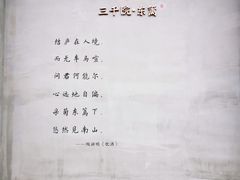 三千院·东篱
结庐在人境,
而无车马喧。
问君何能尔,
心远地自偏。
采菊东篱下,
悠然见南山。
——陶渊明《饮酒》